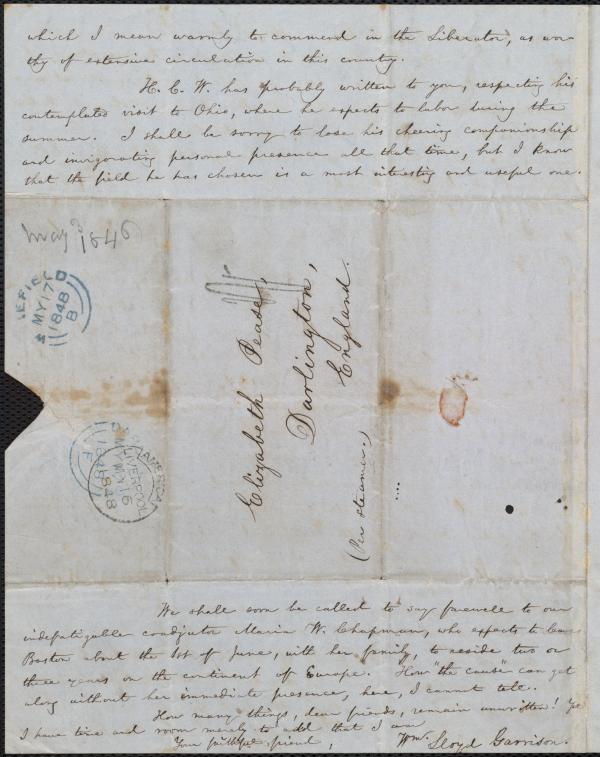 which I mean warmly to commend in the Liberator, as wor-
thy of extensive circulation in this country.
H. C. W. has probably written to you, respecting his
contemplated visit to Ohio, where he expects to labor during the
summer. I shall be sorry to lose his cheering companionship
and invigorating personal presence all that time, but I know
that the field he has chosen is a most interesting and useful one.
May 3 1848
MY 17
1848
B
AMERICA
LIVERPOOL
MY 16
1848
F
Elizabeth Pease,
Darlington,
England.
(Per steamer.)
We shall soon be called to say farewell to our
indefatigable coadjutor Maria W. Chapman, who expects to leave
Boston about the 1st of June, with her family, to reside two or
three years on the continent of Europe. How "the cause" can get
along without her immediate presence, here, I cannot tell.
How many things, dear friends, remain unwritten! Yet
I have time and room merely to add that I am
Your faithful friend,
Wm. Lloyd Garrison.